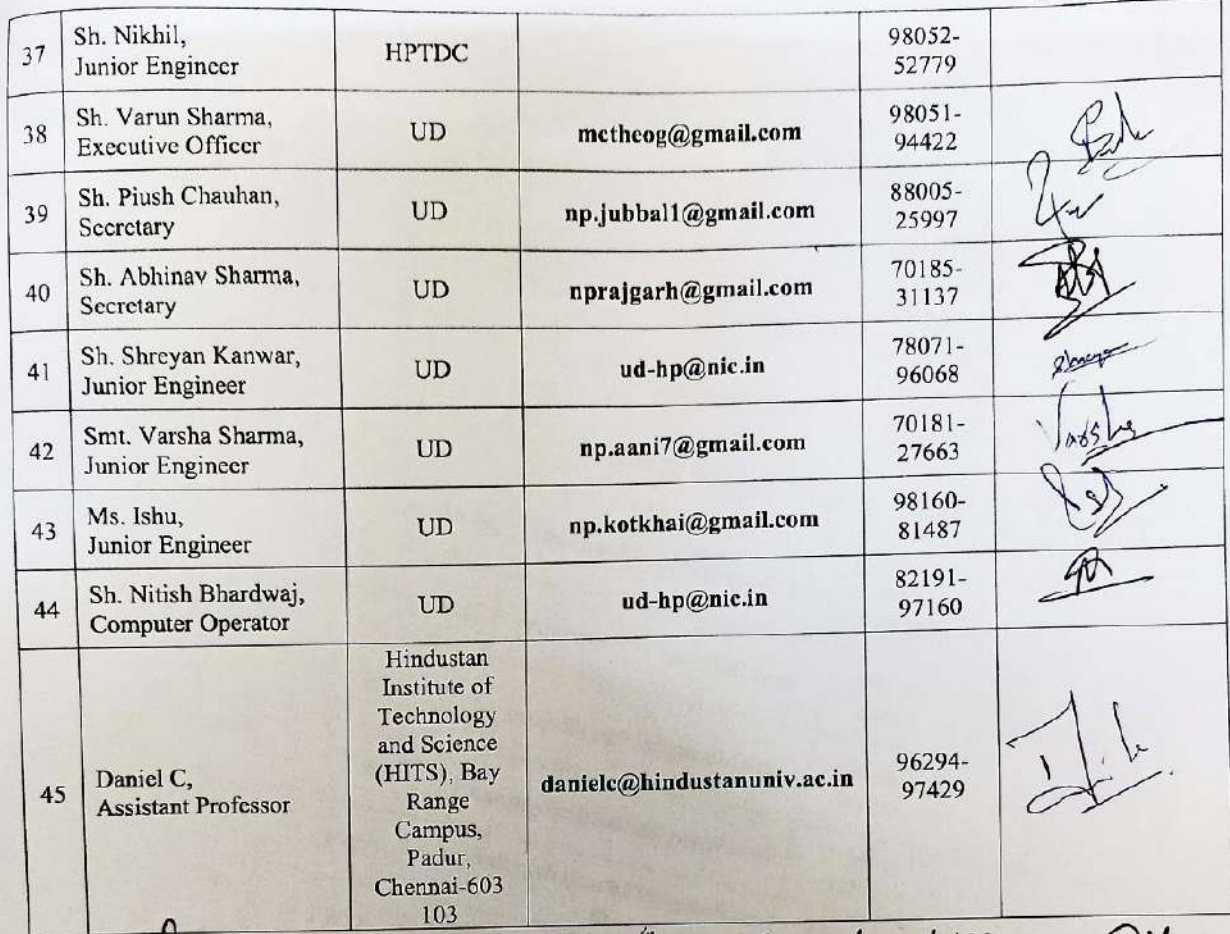 37
Sh. Nikhil,
Junior Engineer
HPTDC
98052-
52779
38
Sh. Varun Sharma,
Executive Officer
UD
mctheog@gmail.com
98051-
94422
39
Sh. Piush Chauhan,
Secretary
UD
np.jubbal1@gmail.com
88005-
25997
40
Sh. Abhinav Sharma,
Secretary
UD
nprajgarh@gmail.com
70185-
31137
41
Sh. Shreyan Kanwar,
Junior Engineer
UD
ud-hp@nic.in
78071-
96068
42
Smt. Varsha Sharma,
Junior Engineer
UD
np.aani7@gmail.com
70181-
27663
Varsha
43
Ms. Ishu,
Junior Engineer
UD
np.kotkhai@gmail.com
98160-
81487
44
Sh. Nitish Bhardwaj,
Computer Operator
UD
ud-hp@nic.in
82191-
97160
45
Daniel C,
Assistant Professor
Hindustan
Institute of
Technology
and Science
(HITS), Bay
Range
Campus,
Padur,
Chennai-603
103
danielc@hindustanuniv.ac.in
96294-
97429